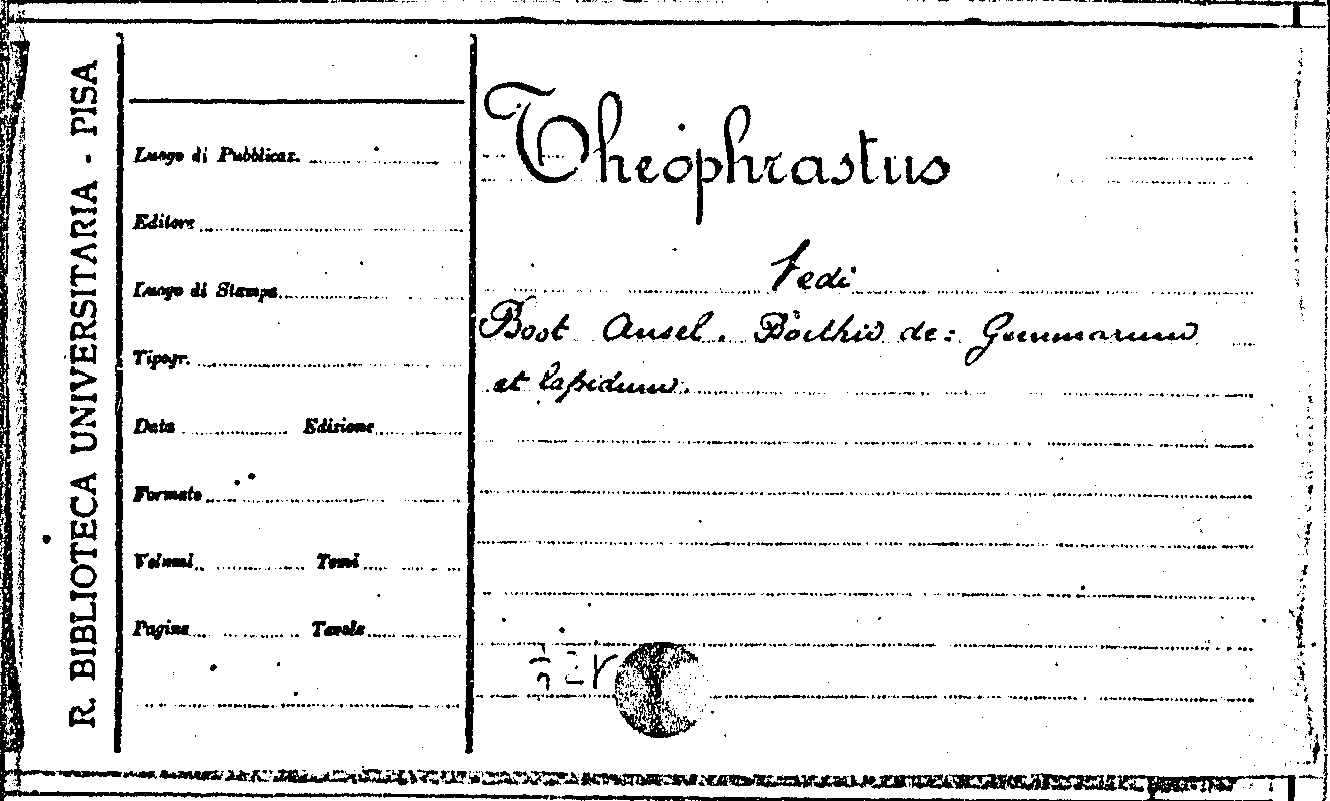 R. BIBLIOTECA UNIVERSITARIA - PISA
Luogo di Pubblicaz.
Editore
Luogo di Stampa
Tipogr.
Data Edizione
Formato
Volumi Tomi
Pagine Tavole
Theophrastus
Vedi
Boot Ansel. Böithio de: Gemmarum
et lapidum.